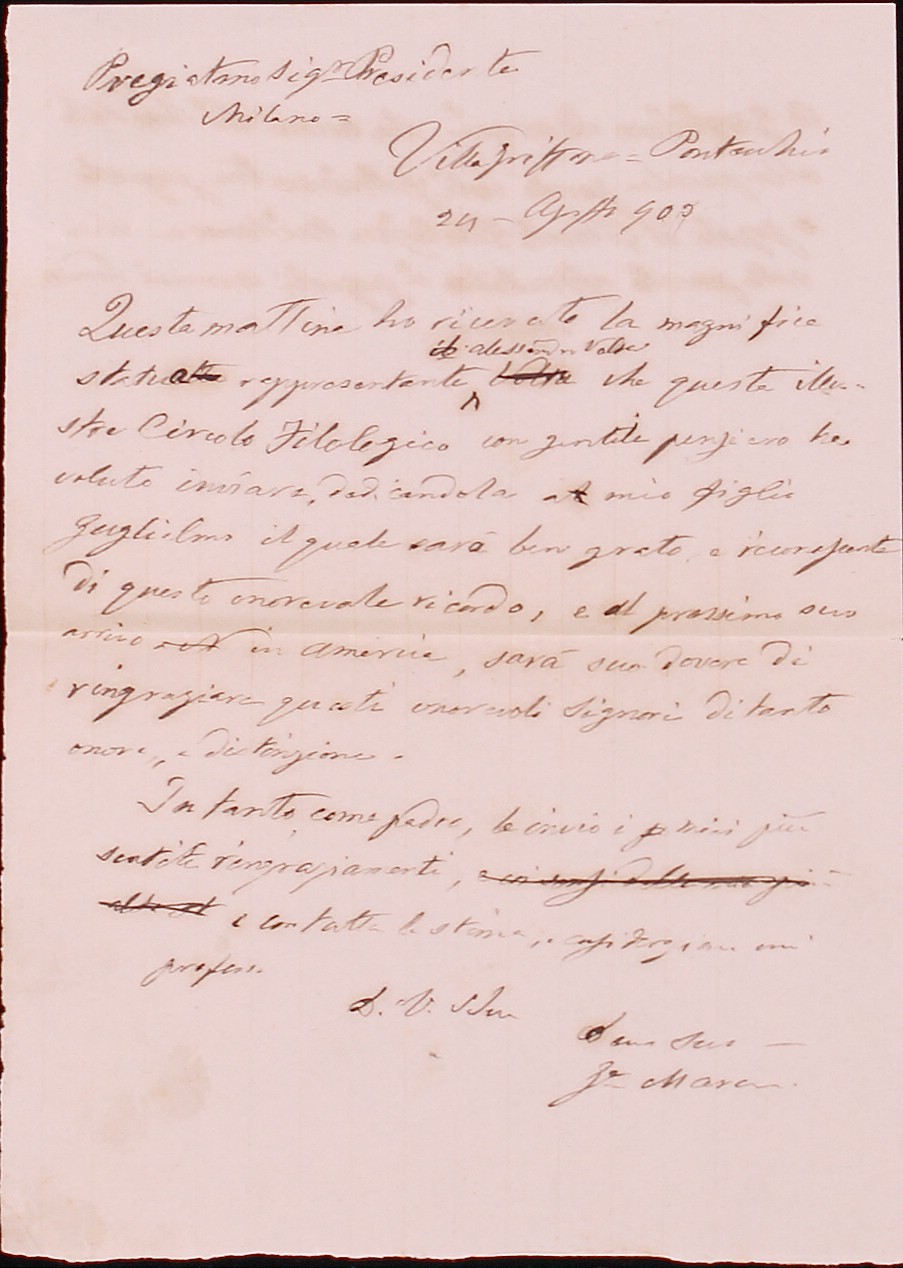 Pregiatmo Sigr Presidente
Milano =
Villa Griffone = Pontecchio
24 - Agosto 902
Questa mattina ho ricevuto la magnifica
Alessandro Volta
statua rappresentante Volta che questo illu-
stre Circolo Filologico con gentile pensiero ha
voluto inviare, dedicandola a mio figlio
Guglielmo il quale sarà ben grato e riconoscente
di questo onorevole ricordo, e al prossimo suo
arrivo in America, sarà suo dovere di
ringraziare questi onorevoli Signori di tanto
onore, e distinzione.
In tanto come padre, le invio i miei più
sentiti ringraziamenti,
e con tutta la stima, e considerazione mi
professo
D. V. Ill
Suo
Ge Marconi